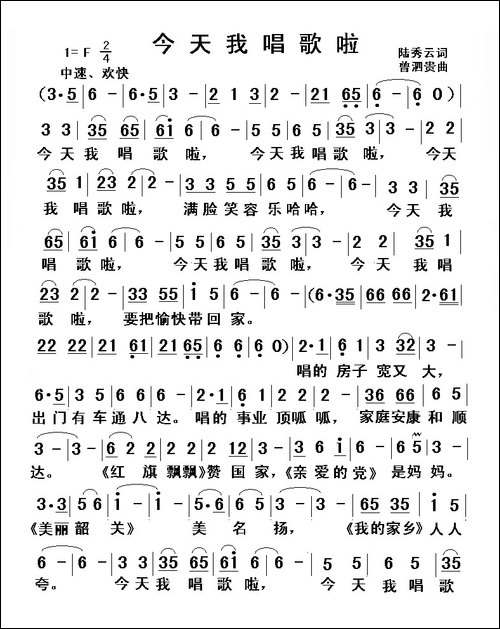 今天我唱歌啦
1=F 2/4
陆秀云词
中速、欢快
曾泗贵曲
(3·5|6-|6·5|3-|2 1 3|2-|21 65|6-|6 0)|
3 3 35|65 61|6-|5 5 65|35 3|3-|2 2|
今天我 唱歌啦， 今天我唱歌啦， 今天
35 1|23 2|2-|3 3 5 5|6 5|6-|6-|3 3 35|
我唱歌啦， 满脸笑容 乐哈哈， 今天我
65|61 6|6-|5 5 65|35 3|3-|2 2|35 1|
唱歌啦， 今天我唱歌啦， 今天 我唱
23 2|2-|33 55|1 5|6-|6-|(6·35|66 66|2·61|
歌啦， 要把愉快带回家。
22 22|21 61|21 65|6 6 6 0)|2·1|6 1 3|32 3|
唱的 房子 宽又大，
6·5|3 5|6 6 6|6-|2·1|6 12|2 2|2-|36 66|6 5|
出门有车通八达。 唱的事业顶呱呱， 家庭安康和顺
3-|3-|6 2|2 2|2 12|3-|3 6 1|6 5|
达。 《红旗飘飘》赞国家，《亲爱的党》是妈妈。
3·3|56|1-|1-|5·6|6 5|3-|65 35|1 5|
《美丽韶关》 美名扬， 《我的家乡》人人
6-|6-|3 3 35|65|61 6|6-|5 5 65|
夸。 今天我唱歌啦， 今天我唱歌